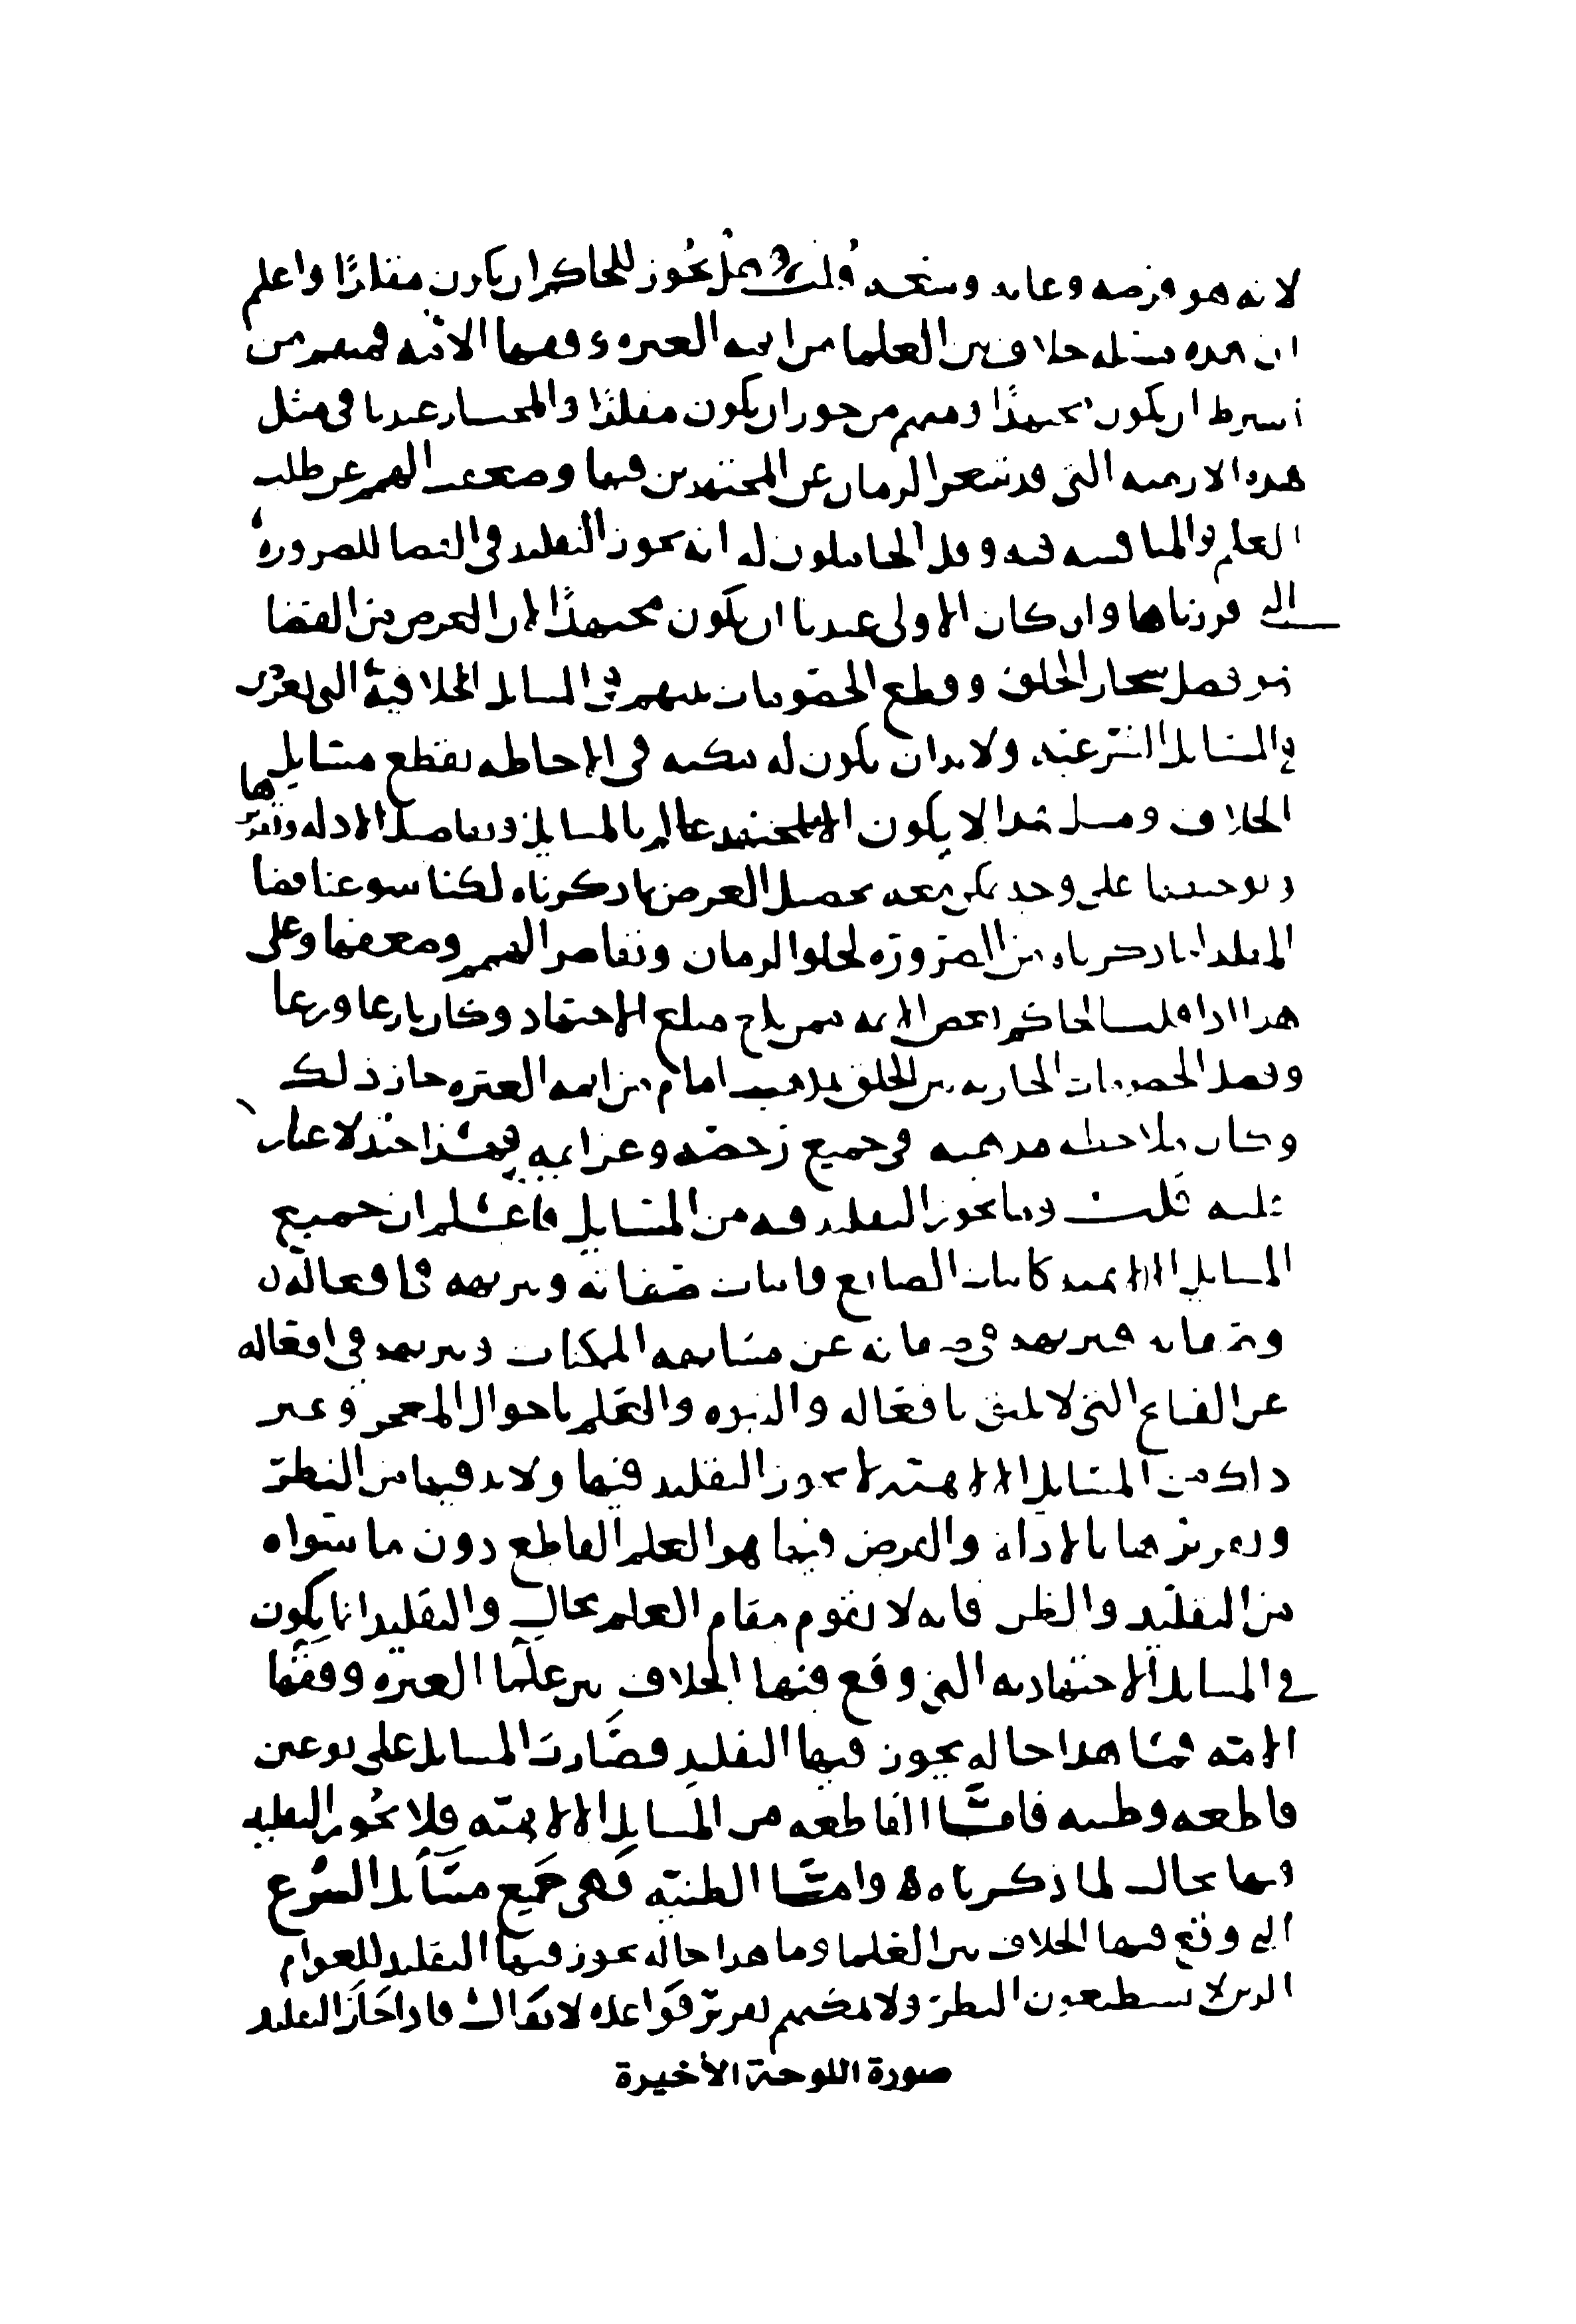 لانه هو فرضه وغايه وسعه قلت هل يجوز للحاكم ان يكون مقلدًا واعلم
ان هذه مسئله خلاف بين العلما من ايمه العتره وفقها الامه فمنهم من
اشترط ان يكون مجتهدًا ومنهم من جوز ان يكون مقلدًا والمختار عندنا فى مثل
هذه الازمنه التى قد شغر الزمان عن المجتهدين فيها وضعفت الهمم عن طلب
العلم والمنافسه فيه وقل الحاملون له انه يجوز التقليد فى القضا للضروره
التى قررناها وان كان الاولى عندنا ان يكون مجتهدًا لان الغرض من القضا
هو فصل شجار الخلق وقطع الخصومات بينهم فى المسايل الخلافية التى
المسايل الشرعيه ولا بد ان يكون له مكنه فى الاحاطه بقطع مسايل
الخلاف ومثل هذا لا يكون الا لمجتهد عالم بالمسايل وتفاصيل الادله وتقريرها
وتوجيهها على وجه يمكن معه تحصيل الغرض بما ذكرناه لكنا سوغنا قضا
المقلد لما ذكرناه من الضرورة لخلو الزمان وتقاصر الهمم وضعفها وعلى
هذا اذا قلد الحاكم بعض الايمه ممن بلغ مبلغ الاجتهاد وكان بارعا ورعا
وفصل الخصومات الجاريه بين الخلق بمذهب امام من ايمه العتره جاز ذلك
وكان ملاحظا مذهبه فى جميع رخصه وعزايمه فهذا جيد لا غبار
عليه قلت وما يجوز التقليد فيه من المسايل فاعلم ان جميع
المسايل الالاهيه كاثبات الصانع واثبات صفاته وتنزيهه فى افعاله
وصفاته فتنزيهه فى صفاته عن مشابهه الممكنات وتنزيهه فى افعاله
عن القبايح التى لا تليق بافعاله والنبوه والعلم باحوال المعجز وغير
ذلك من المسايل الالاهيه لا يجوز التقليد فيها ولا بد فيها من النظر
وتقريرها بالادله والغرض فيها هو العلم القاطع دون ما سواه
من التقليد والظن فانه لا يقوم مقام العلم بحال والتقليد انما يكون
فى المسايل الاجتهاديه التى وقع فيها الخلاف بين علما العتره وفقها
الامه فما هذا حاله يجوز فيها التقليد فصارت المسايل على نوعين
قاطعه وظنيه فامّا القاطعه من المسايل الالاهيّه فلا يجوز التقليد
فيها بحال لما ذكرناه وامّا الظنيّه فهى جميع مسايل الشرع
التى وقع فيها الخلاف بين العلما وما هذا حاله يجوز فيها التقليد للعوام
الذين لا يستطيعون النظر ولا يمكنهم تقرير قواعده لا يقال فاذا جاز التقليد
صورة اللوحة الأخيرة